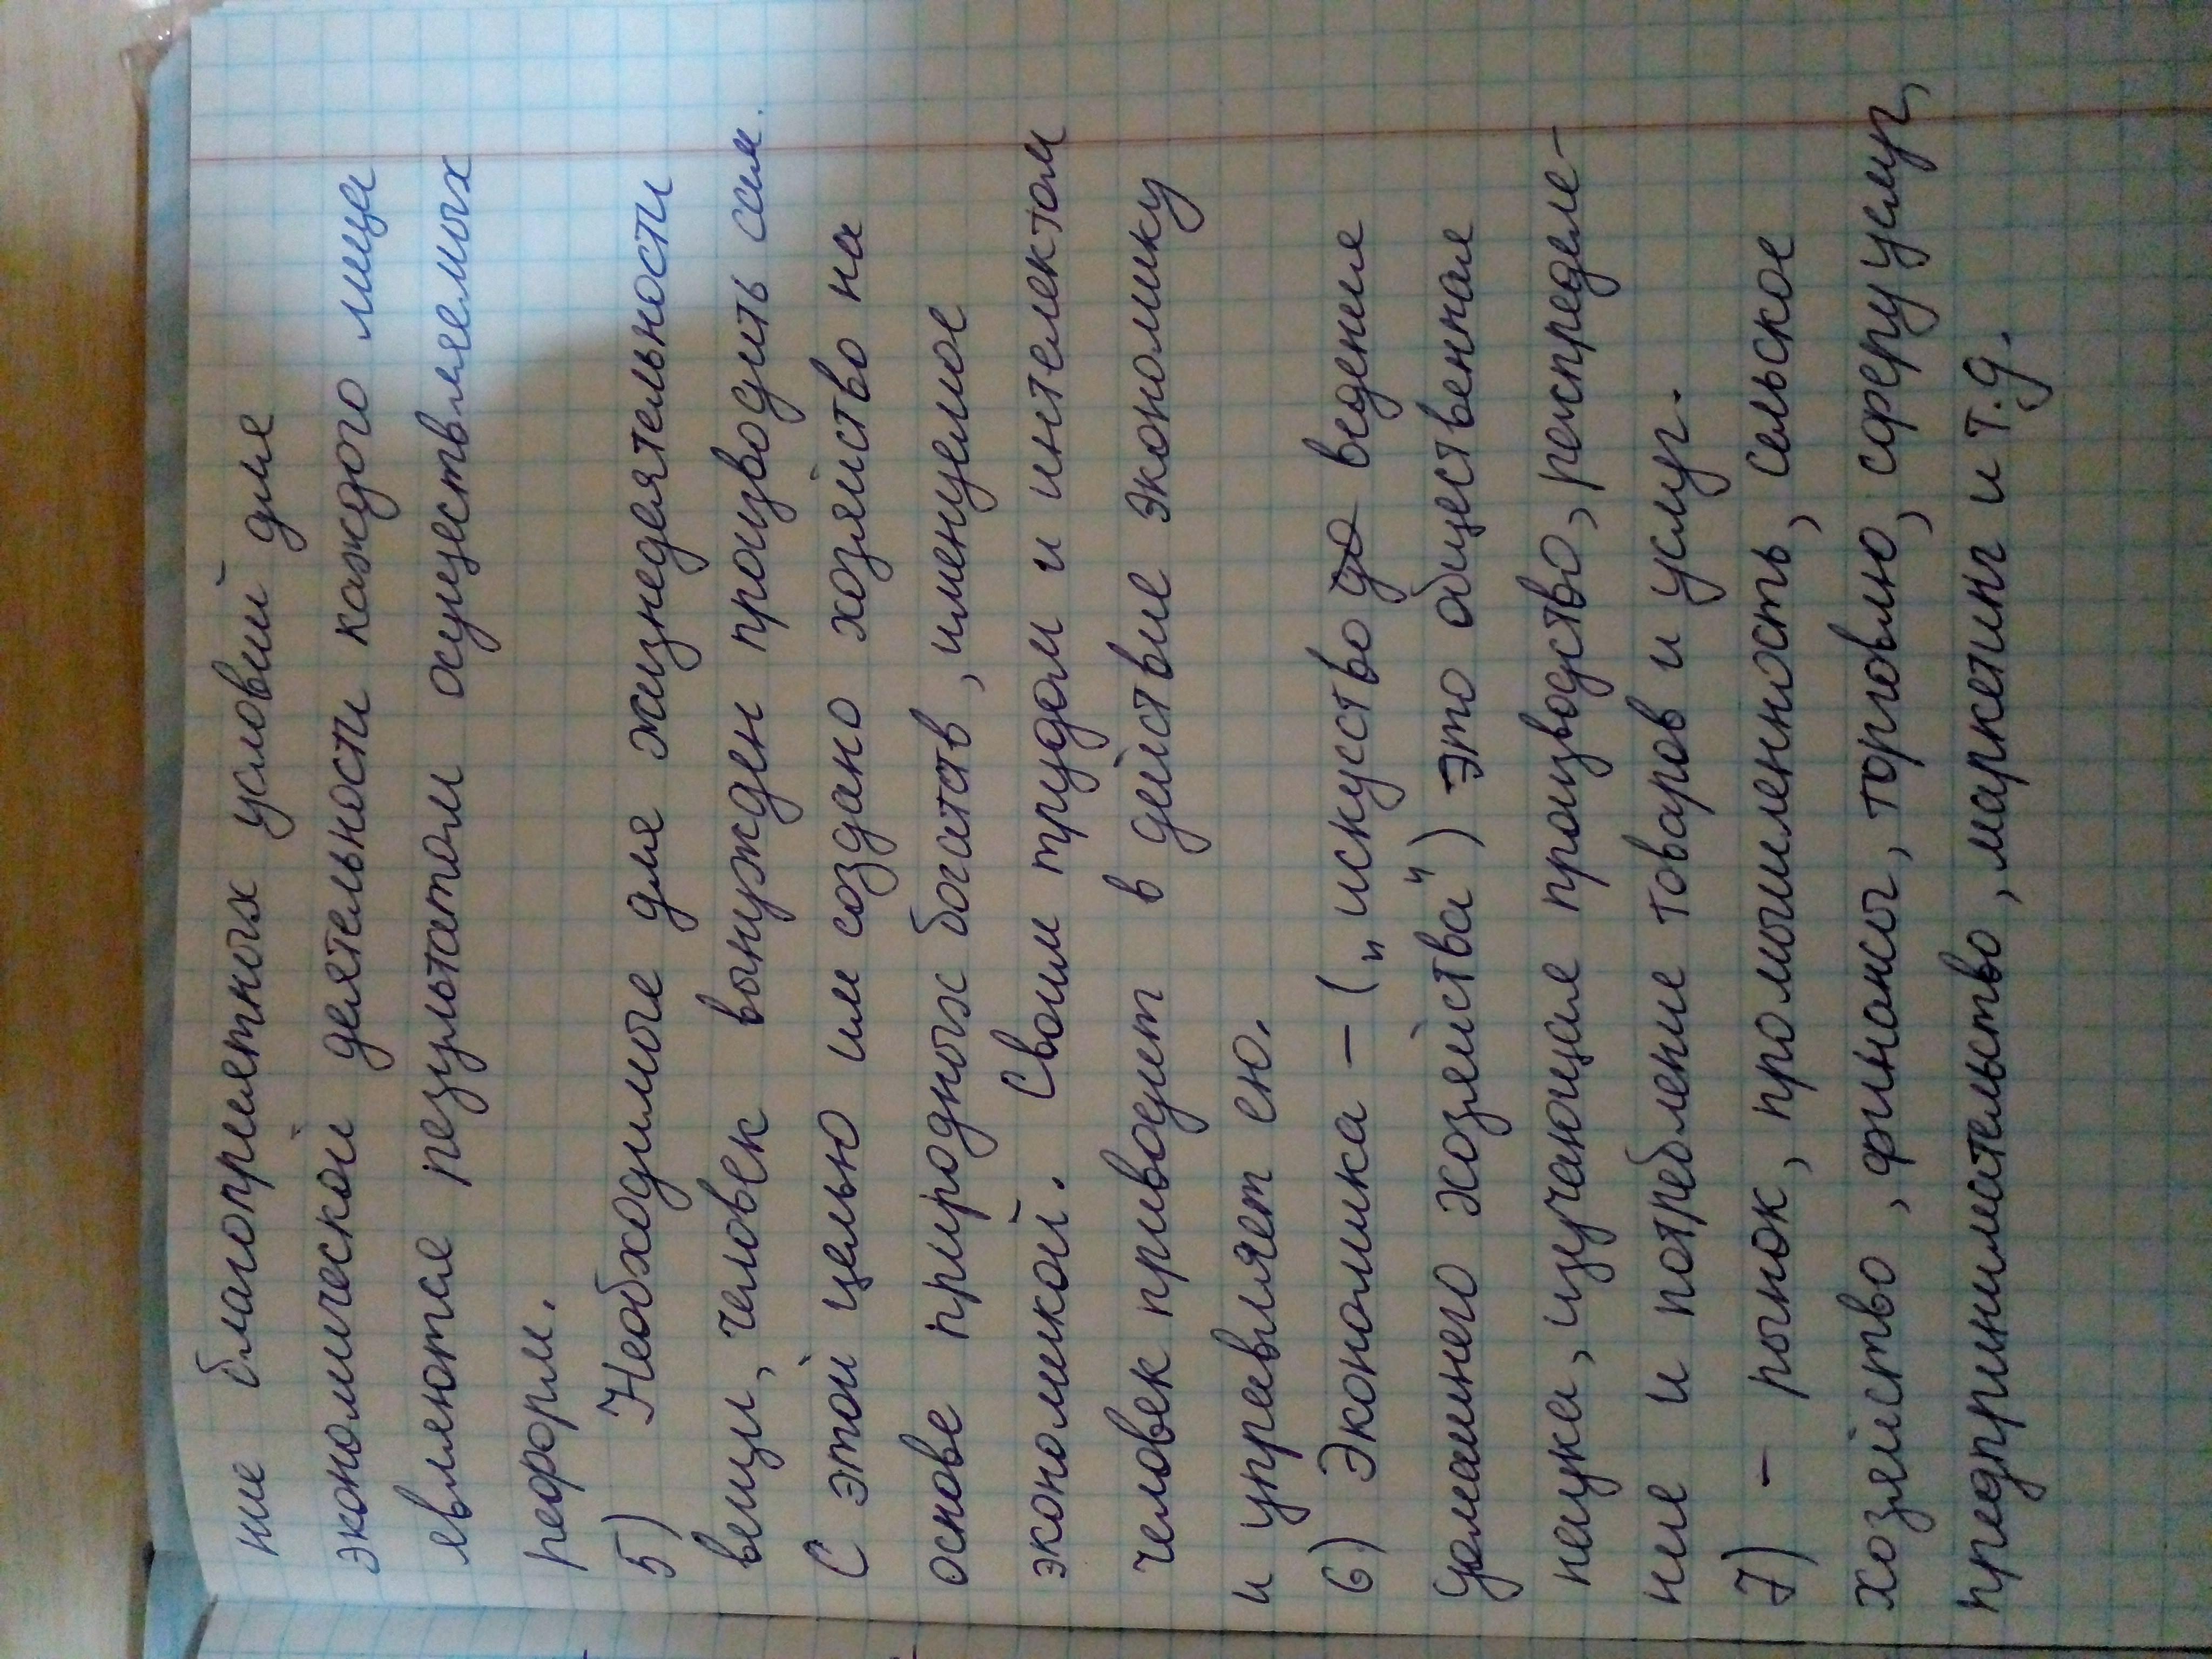 ние благоприятных условий для
экономической деятельности каждого лица
являются результатом осуществляемых
реформ.
5) Необходимые для жизнедеятельности
вещи, человек вынужден производить сам.
С этой целью им создано хозяйство на
основе природных богатств, именуемое
экономикой. Своим трудом и интелектом
человек приводит в действие экономику
и управляет ею.
6) Экономика – („искуство ведения
домашнего хозяйства") это общественная
наука, изучающая производство, распределе-
ние и потребление товаров и услуг.
7) – рынок, промышленность, сельское
хозяйство, финансы, торговлю, сферу услуг,
предпринимательство, маркетинг и т.д.